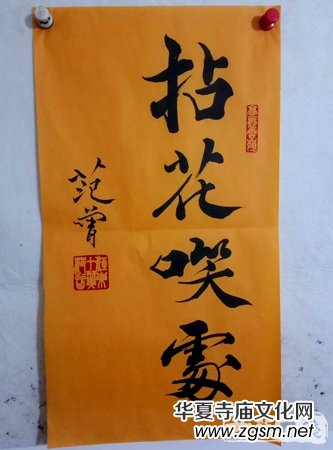 拈花唉處
范曾
华夏寺庙文化网
www.zgsm.net